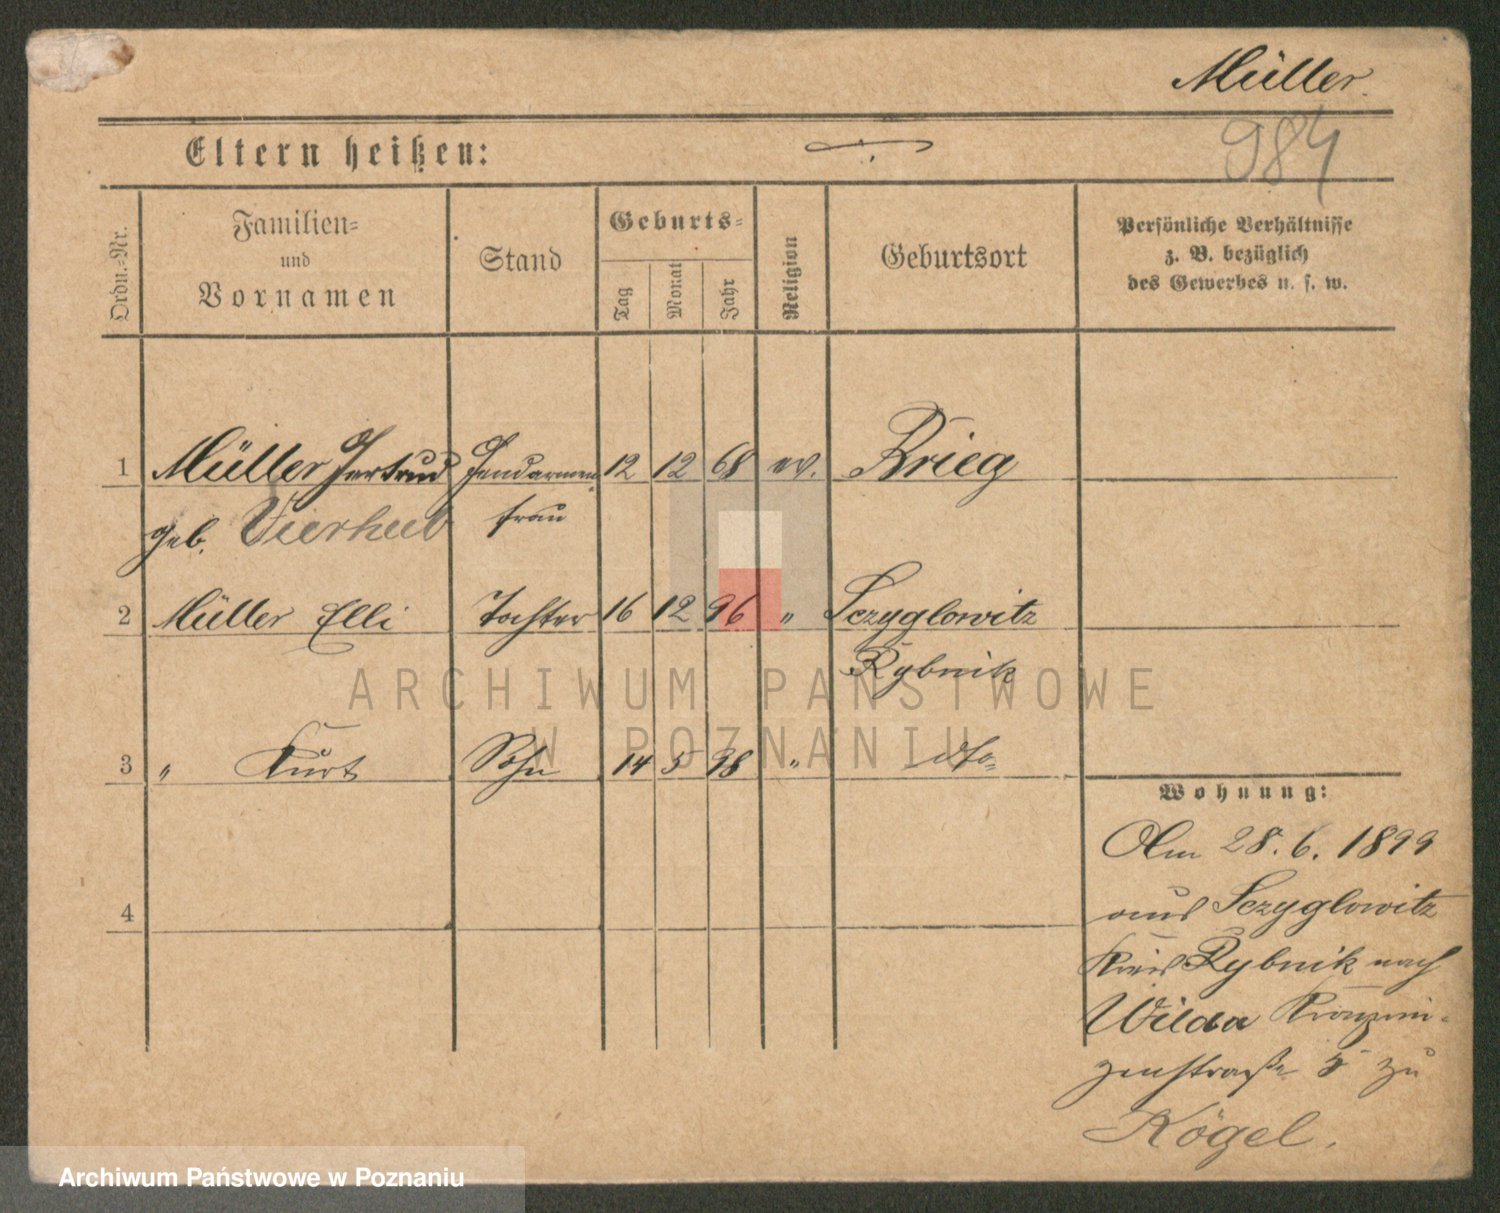 Müller.
984
Eltern heißen:
Ordn.-Nr.
Familien-
und
Vornamen
Stand
Geburts-
Tag
Monat
Jahr
Religion
Geburtsort
Persönliche Verhältnisse
z. B. bezüglich
des Gewerbes u. s. w.
1 Müller Gertrud Gendarmen 12 12 68 ev. Brieg
geb. Vierhub frau
2 Müller Elli Tochter 16 12 96 " Sczyglowitz
Rybnik
3 " Kurt Sohn 14 5 98 " dto=
4
Wohnung:
Am 28. 6. 1899
aus Sczyglowitz
Kreis Rybnik nach
Wilda Kronprin-
zenstraße 5 zu
Kögel.
ARCHIWUM PAŃSTWOWE
W POZNANIU
Archiwum Państwowe w Poznaniu